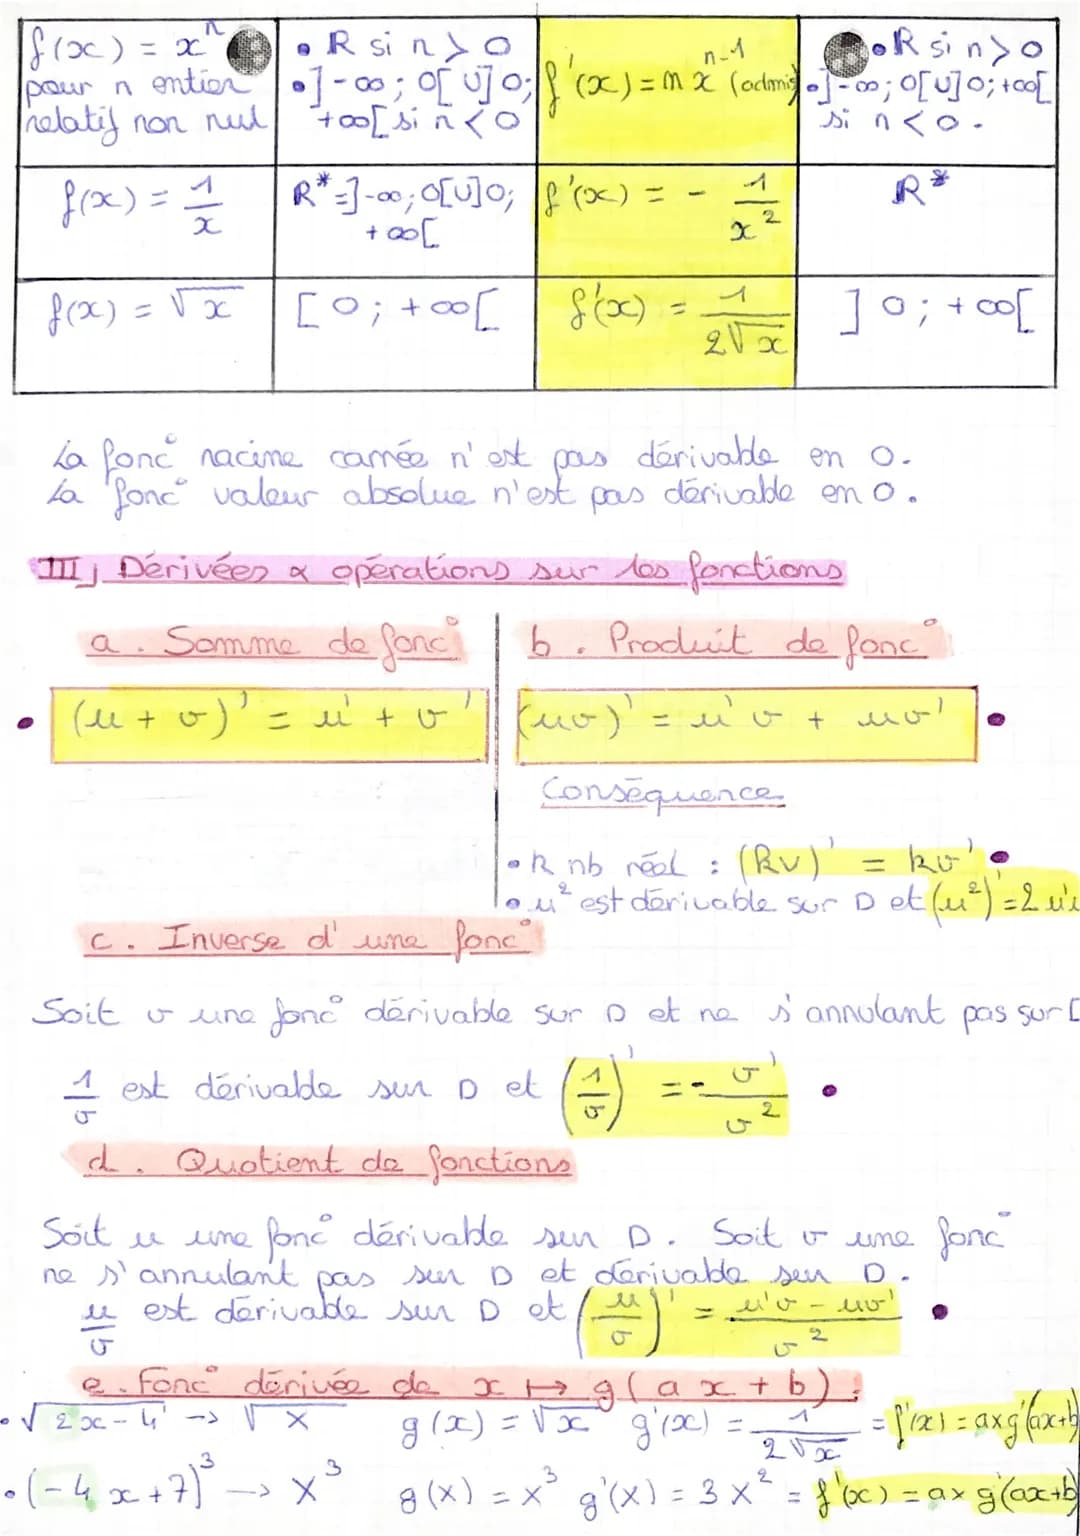 f(x) = xⁿ
pour n entier
relatif non nul
• R si n > 0
• ]-∞; 0[ U ]0;
+∞[ si n < 0
f'(x) = n x^(n-1) (admis)
• R si n > 0
• ]-∞; 0[ U ]0; +∞[
si n < 0.
f(x) = 1/x
R* = ]-∞; 0[ U ]0;
+∞[
f'(x) = - 1/x²
R*
f(x) = √x
[0; +∞[
f'(x) = 1/(2√x)
]0; +∞[
La fonc° racine carrée n'est pas dérivable en 0.
La fonc° valeur absolue n'est pas dérivable en 0.
III, Dérivées & opérations sur les fonctions
a. Somme de fonc°
• (u + v)' = u' + v'
b. Produit de fonc°
(uv)' = u'v + uv' •
Conséquence
• k nb réel : (kv)' = kv' •
• u² est dérivable sur D et (u²)' = 2 u'u
c. Inverse d'une fonc°
Soit v une fonc° dérivable sur D et ne s'annulant pas sur D
1/v est dérivable sur D et (1/v)' = - v'/v² •
d. Quotient de fonctions
Soit u une fonc° dérivable sur D. Soit v une fonc°
ne s'annulant pas sur D et dérivable sur D.
u/v est dérivable sur D et (u/v)' = (u'v - uv')/v² •
e. Fonc° dérivée de x ↦ g(ax + b) :
• √(2x-4) -> √X g(x) = √x g'(x) = 1/(2√x) = f'(x) = a×g'(ax+b)
• (-4x+7)³ -> X³ g(x) = x³ g'(x) = 3x² = f'(x) = a× g'(ax+b)